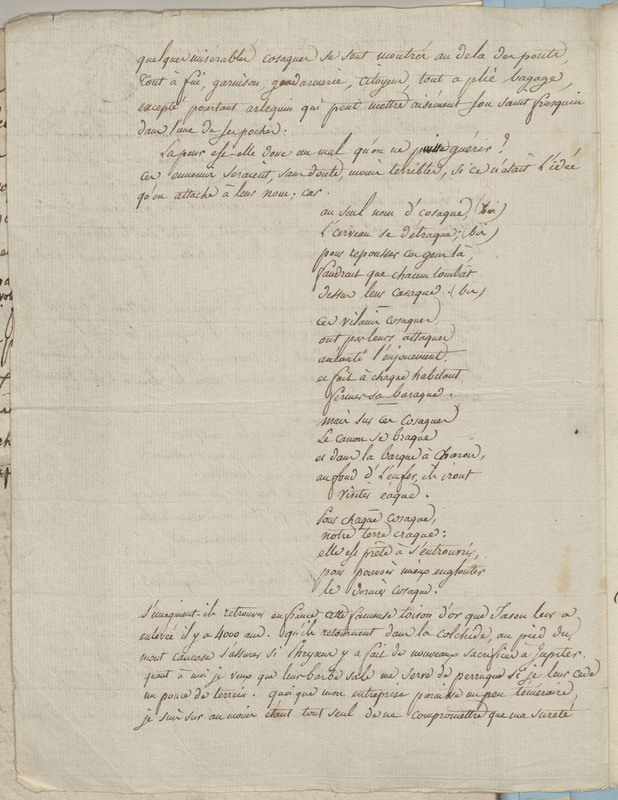 quelques misérables cosaques se sont montrés au dela des ponts,
tout a fui, garnison, gendarmerie, citoyens, tout a plié bagage,
excepté pourtant arlequin qui peut mettre aisément son saint frusquin
dans l'une de ses poches.
La peur est elle donc un mal qu'on ne puisse guérir ?
ces ennemis seraient sans doute, moins terribles, si ce n'était L'idée
qu'on attache à leur nom ; car.
au seul nom d'cosaque, (bis)
L'cerveau se détraque ; (bis)
pour repousser ces gens là,
faudrait que chacun tombât
dessus leur casaque. (bis)
ces vilains cosaques
ont par leurs attaques
anéanti l'enjouement,
et fait à chaque habitant
fermer sa baraque.
mais sur ces cosaques
Le canon se braque
et dans la barque à Charon,
au fond d'L'enfer, ils iront
visiter éaque.
Pour chaque cosaque,
notre terre craque :
elle est prête à s'entrouvrir,
pour pouvoir mieux engloutir
le dernier cosaque.
S'imaginent-ils retrouver en france cette fameuse toison d'or que Jason leur a
enlevée il y a 4000 ans. qu'ils retournent dans la colchide, au pied du
mont caucase s'assurer si Phryxus y a fait de nouveaux sacrifices à Jupiter.
quant à moi je veux que leur barbe sale me serve de perruque si je leur cède
un pouce de terrein. quoi que mon entreprise paraisse un peu téméraire,
je suis sur au moins étant tout seul de ne compromettre que ma sureté